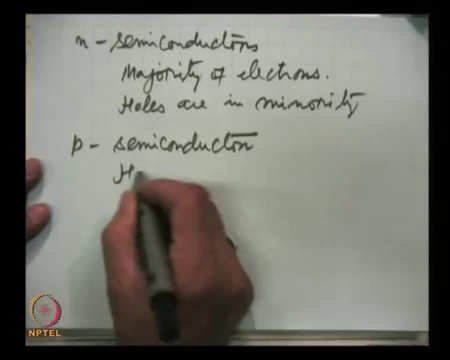 n - semiconductors
Majority of electrons.
Holes are in minority
p - semiconductor
H
NPTEL